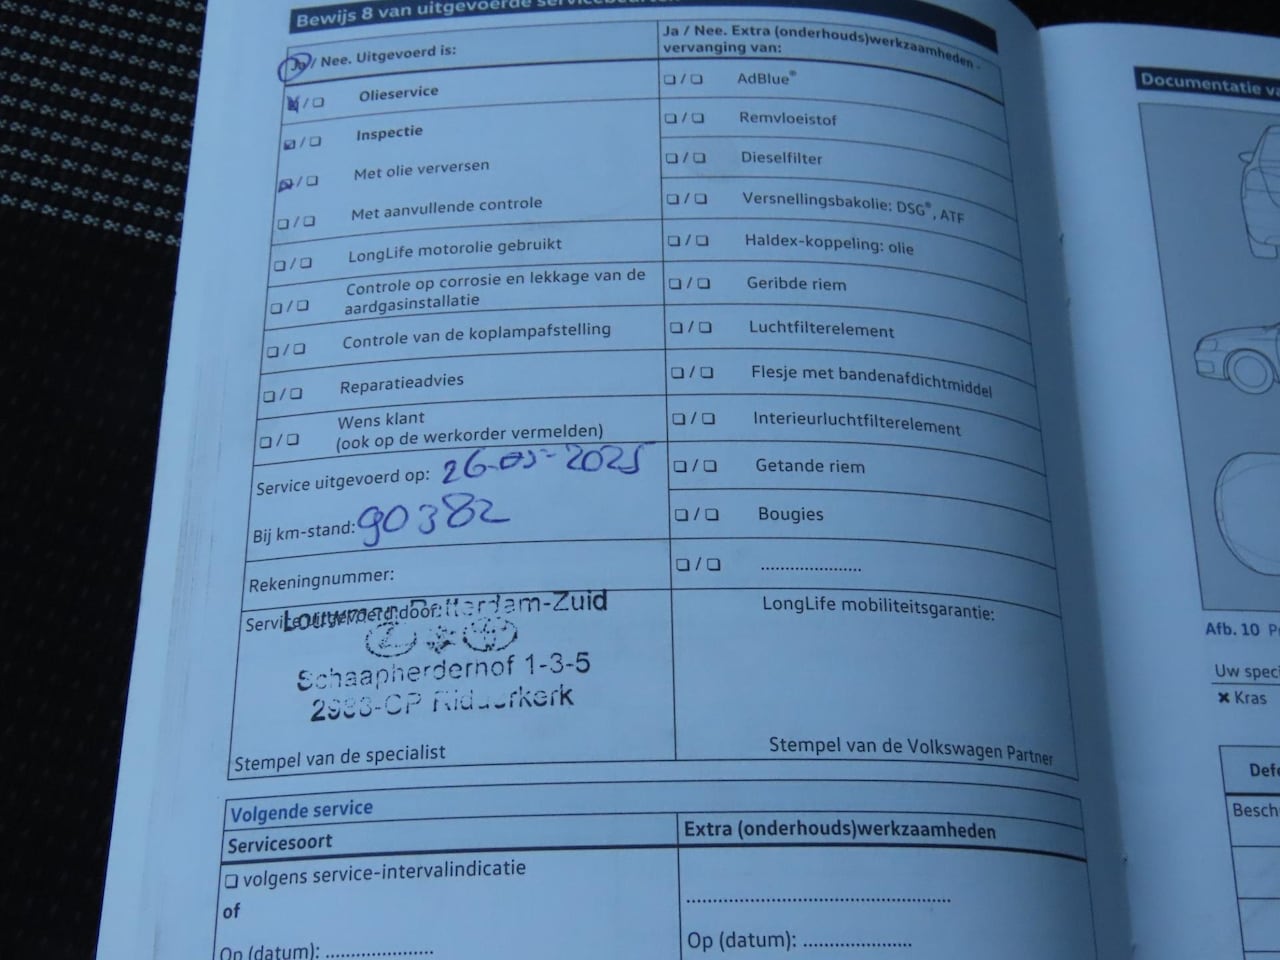 Bewijs 8 van uitgevoerde servicebeurten
Ja / Nee. Uitgevoerd is:
☒ / ☐ Olieservice
☒ / ☐ Inspectie
☒ / ☐ Met olie verversen
☐ / ☐ Met aanvullende controle
☐ / ☐ LongLife motorolie gebruikt
☐ / ☐ Controle op corrosie en lekkage van de
aardgasinstallatie
☐ / ☐ Controle van de koplampafstelling
☐ / ☐ Reparatieadvies
☐ / ☐ Wens klant
(ook op de werkorder vermelden)
Service uitgevoerd op: 26-05-2025
Bij km-stand: 90382
Rekeningnummer:
Service uitgevoerd door:
Louwman Rotterdam-Zuid
Schaapherderhof 1-3-5
Ridderkerk
Stempel van de specialist
Ja / Nee. Extra (onderhouds)werkzaamheden -
vervanging van:
☐ / ☐ AdBlue®
☐ / ☐ Remvloeistof
☐ / ☐ Dieselfilter
☐ / ☐ Versnellingsbakolie: DSG®, ATF
☐ / ☐ Haldex-koppeling: olie
☐ / ☐ Geribde riem
☐ / ☐ Luchtfilterelement
☐ / ☐ Flesje met bandenafdichtmiddel
☐ / ☐ Interieurluchtfilterelement
☐ / ☐ Getande riem
☐ / ☐ Bougies
☐ / ☐ ....................
LongLife mobiliteitsgarantie:
Stempel van de Volkswagen Partner
Volgende service
Servicesoort
☐ volgens service-intervalindicatie
of
Op (datum): ....................
Extra (onderhouds)werkzaamheden
..................................................
Op (datum): ....................
Documentatie
Afb. 10
Uw
✖ Kras